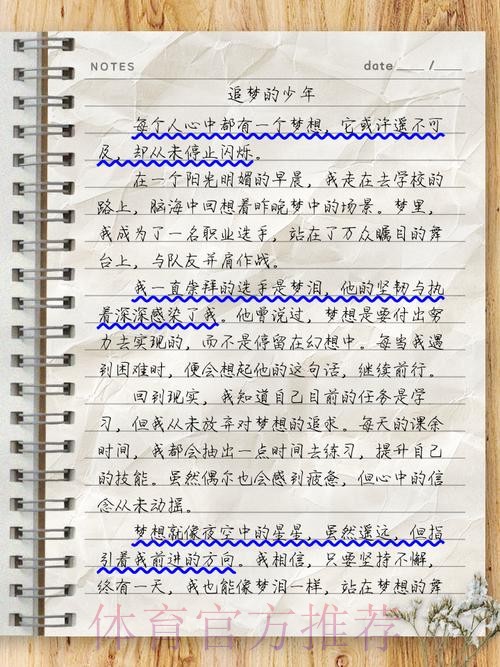 NOTES date ____ / ____
追梦的少年
每个人心中都有一个梦想，它或许遥不可
及，却从未停止闪烁。
在一个阳光明媚的早晨，我走在去学校的
路上，脑海中回想着昨晚梦中的场景。梦里，
我成为了一名职业选手，站在了万众瞩目的舞
台上，与队友并肩作战。
我一直崇拜的选手是梦泪，他的坚韧与执
着深深感染了我。他曾说过，梦想是要付出努
力去实现的，而不是停留在幻想中。每当我遇
到困难时，便会想起他的这句话，继续前行。
回到现实，我知道自己目前的任务是学
习，但我从未放弃对梦想的追求。每天的课余
时间，我都会抽出一点时间去练习，提升自己
的技能。虽然偶尔也会感到疲惫，但心中的信
念从未动摇。
梦想就像夜空中的星星，虽然遥远，但指
引着我前进的方向。我相信，只要坚持不懈，
终有一天，我也能像梦泪一样，站在梦想的舞
体育官方推荐